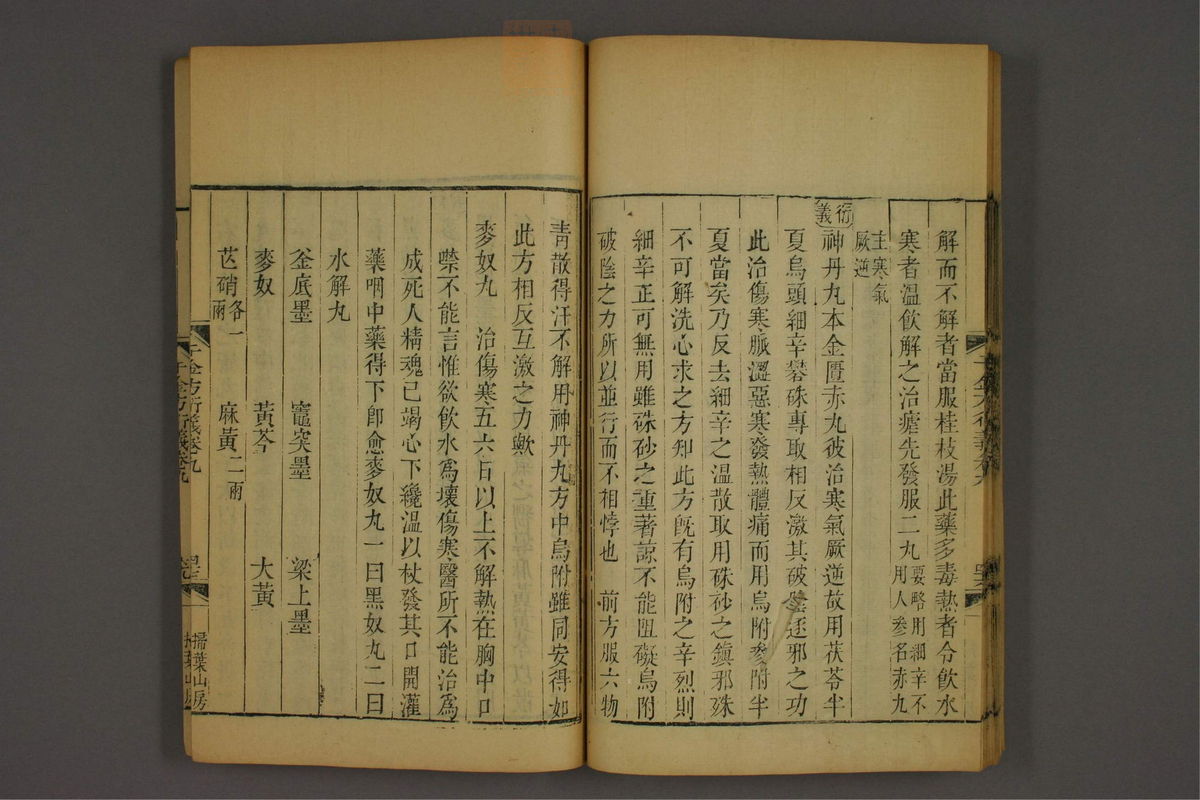 解而不解者當服桂枝湯此藥多毒熱者令飲水
寒者溫飲解之治瘧先發服二丸要略用細辛不用人參名赤丸
主寒氣厥逆
衍義
神丹丸本金匱赤丸彼治寒氣厥逆故用茯苓半
夏烏頭細辛礬硃專取相反激其破陰逐邪之功
此治傷寒脈澀惡寒發熱體痛而用烏附參附半
夏當矣乃反去細辛之溫散取用硃砂之鎮邪殊
不可解洗心求之方知此方既有烏附之辛烈則
細辛正可無用雖硃砂之重著諒不能阻礙烏附
破陰之力所以並行而不相悖也 前方服六物
青散得汗不解用神丹丸方中烏附雖同安得如
此方相反互激之力歟
麥奴丸 治傷寒五六日以上不解熱在胸中口
噤不能言惟欲飲水為壞傷寒醫所不能治為
成死人精魂已竭心下纔溫以杖發其口開灌
藥咽中藥得下即愈麥奴丸一曰黑奴丸二曰
水解丸
釜底墨 竈突墨 梁上墨
麥奴 黃芩 大黃
芒硝各一兩 麻黃二兩
千金方衍義卷九
掃葉山房